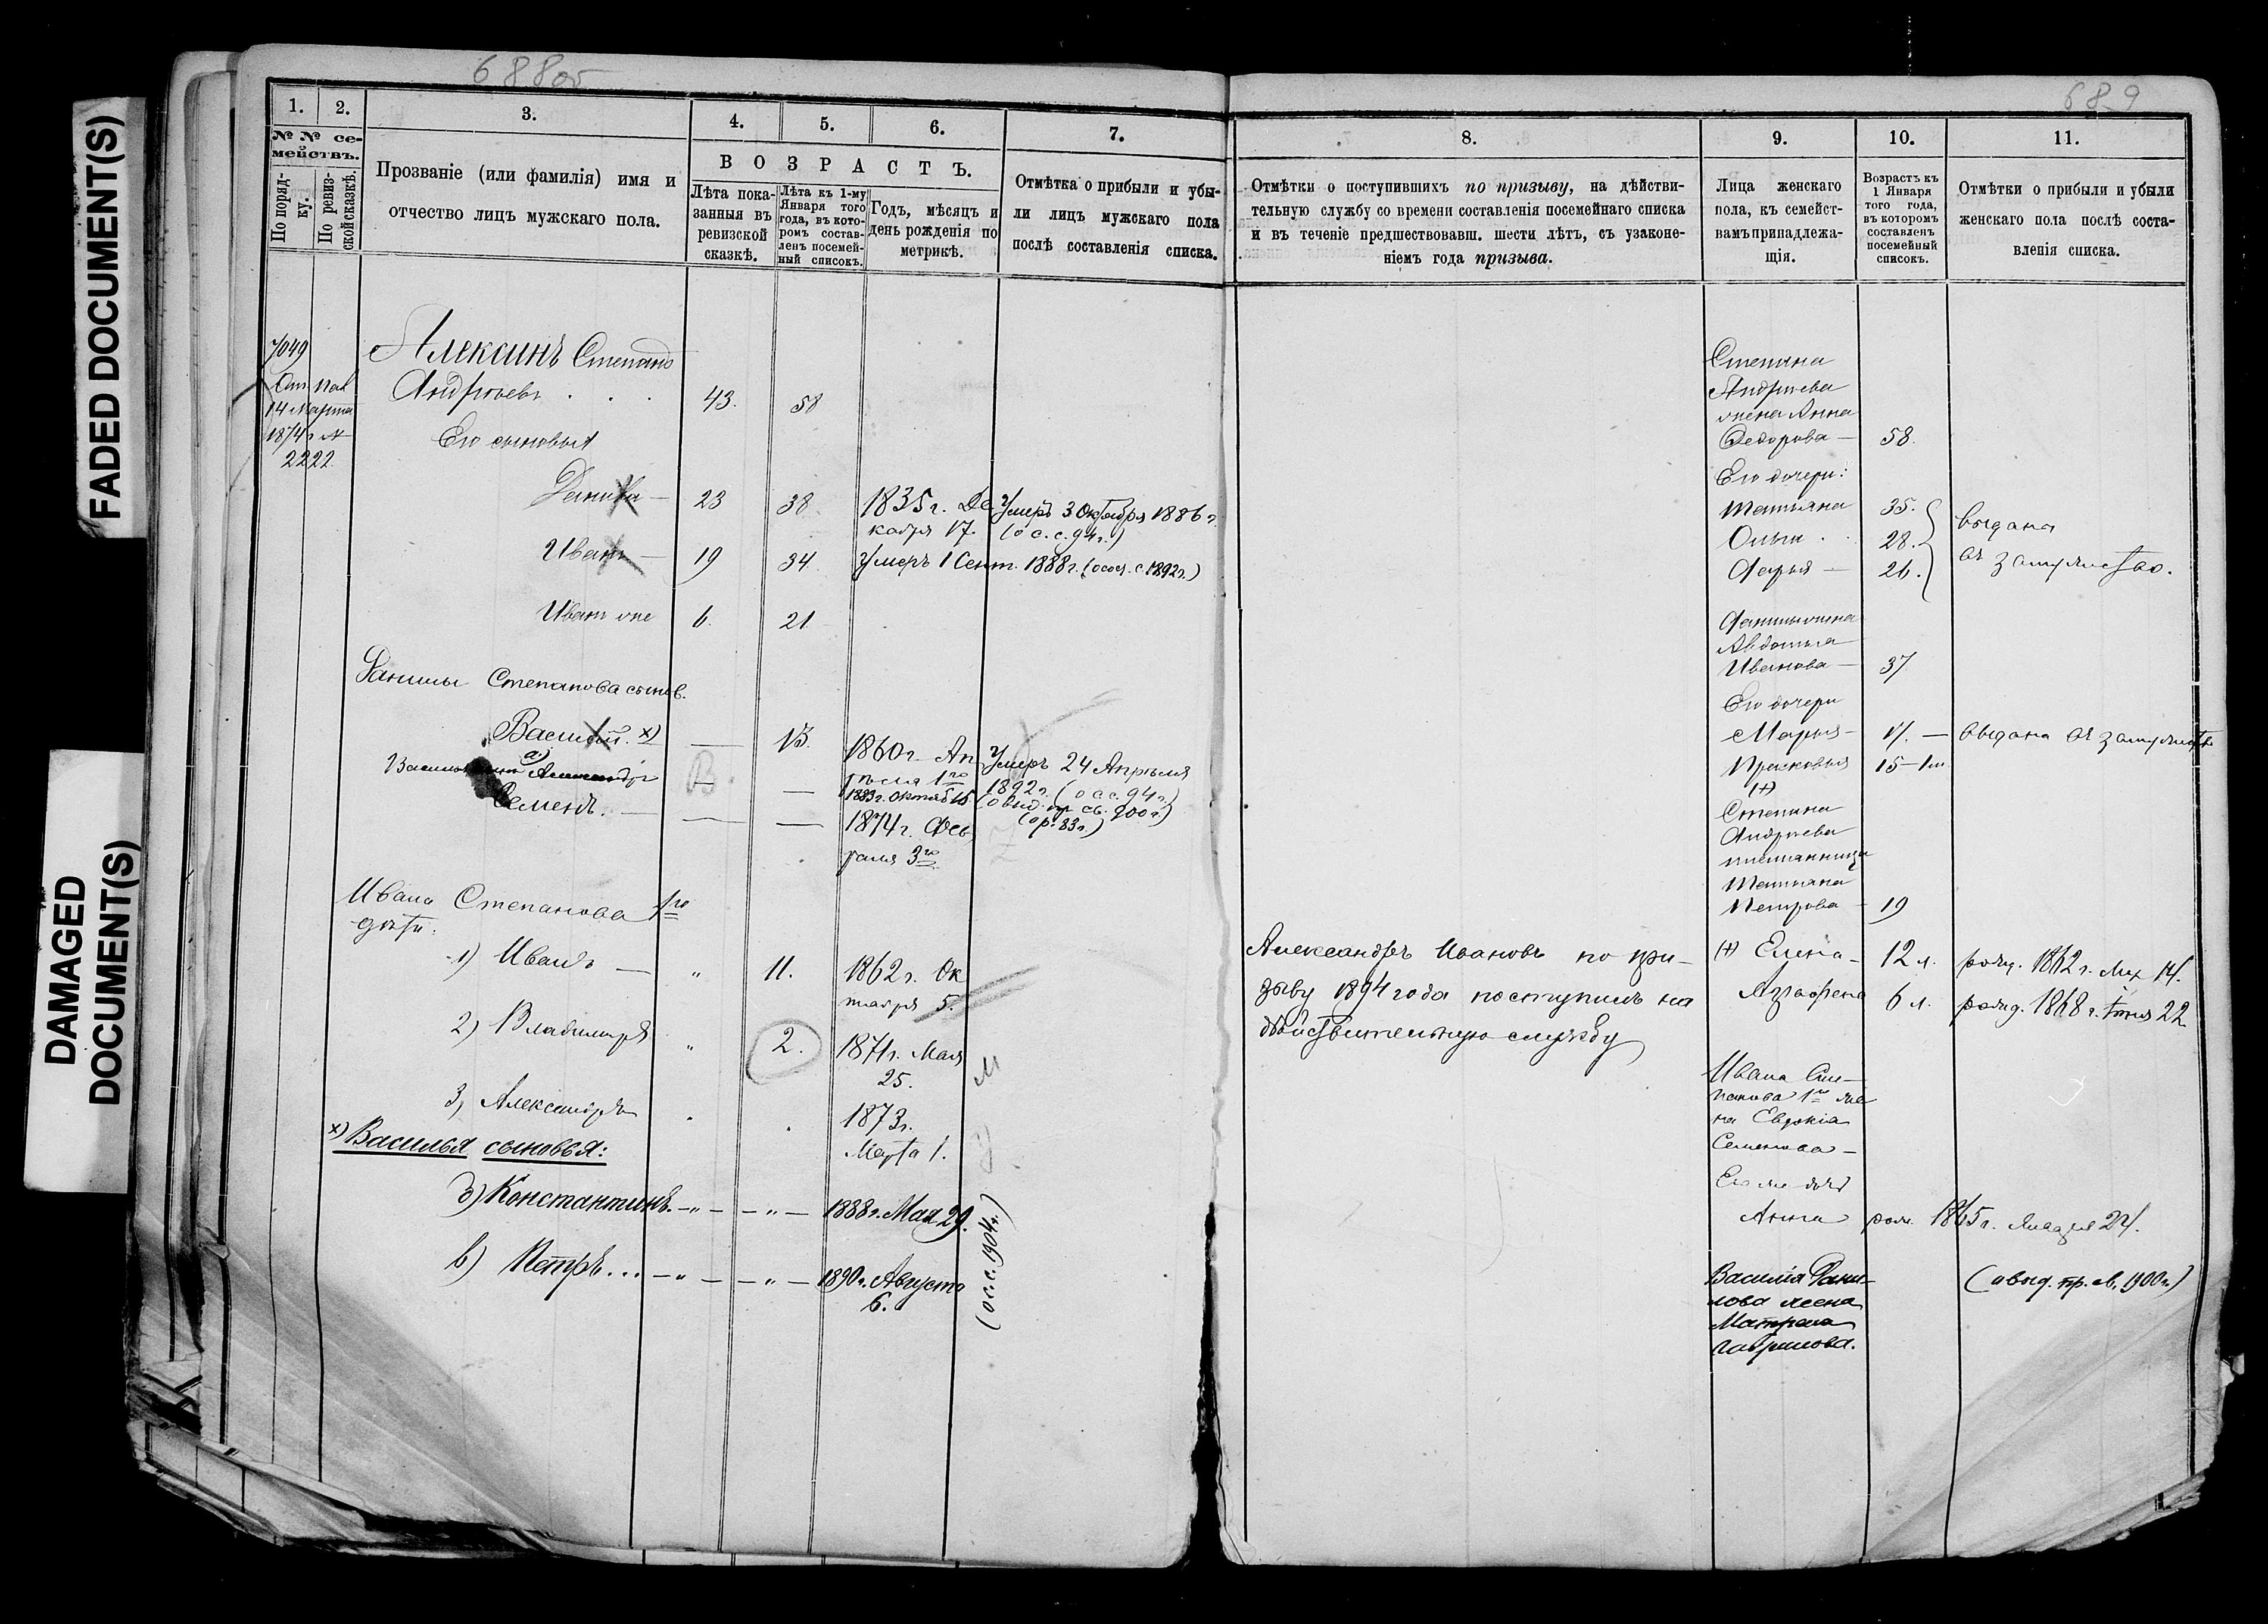 FADED DOCUMENT(S)
DAMAGED
DOCUMENT(S)
688об
689
1.
2.
3.
4.
5.
6.
7.
№ № се-
мействъ.
По поряд-
ку.
По ревиз-
ской сказкѣ.
Прозваніе (или фамилія) имя и
отчество лицъ мужскаго пола.
ВОЗРАСТЪ.
Лѣта пока-
занныя въ
ревизской
сказкѣ.
Лѣта къ 1-му
Января того
года, въ кото-
ромъ состав-
ленъ посемей-
ный списокъ.
Годъ, мѣсяцъ и
день рожденія по
метрикѣ.
Отмѣтка о прибыли и убы-
ли лицъ мужскаго пола
послѣ составленія списка.
7049
14 Марта
1874 г №
2222
Алексинъ Степанъ
Андреевъ . . . 43. 58
Его сыновья
Данила — 23 38. 1835 г. Де Умеръ 3 Октября 1886 г.
кабря 17. (о с. с. 94 г.)
Иванъ — 19 34. Умеръ 1 Сент. 1888 г. 1892 г.)
Иванъ же 6. 21
Данилы Степанова сынов.
Василій. х) — 13. 1860 г. Ап Умеръ 24 Апрѣля
рѣля 1го 1892 г. (о с с. 94 г.)
а) Александръ — 1883 г. Октяб 15 (о выд. пр. св. 900 г.)
Семенъ. — — — 1874 г. Фев (ор. 83 г.)
раля 3го
Ивана Степанова 1го
дѣти:
1) Иванъ — „ 11. 1862 г. Ок
тября 5.
2) Владиміръ „ 2. 1871 г. Мая
25.
3) Александръ 1873 г.
Марта 1.
х) Василья сыновья:
Константинъ. — „ — — „ — 1888 г. Мая 29.
в) Петръ... — „ — — „ — 1890 г. Августа
6.
(о с. с. 1904 г.)
8.
9.
10.
11.
Отмѣтки о поступившихъ по призыву, на дѣйстви-
тельную службу со времени составленія посемейнаго списка
и въ теченіе предшествовавш. шести лѣтъ, съ узаконе-
ніемъ года призыва.
Лица женскаго
пола, къ семейст-
вамъ принадлежа-
щія.
Возрастъ къ
1 Января
того года,
въ которомъ
составленъ
посемейный
списокъ.
Отмѣтки о прибыли и убыли
женскаго пола послѣ соста-
вленія списка.
Степана
Андреева
жена Анна
Федорова — 58.
Его дочери:
Татьяна 35.
Ольга . . 28. выдана
Дарья — 26. въ замужество.
Данилы жена
Авдотья
Иванова — 37
Его дочери
Марья — 17. — выдана въ замужство
Прасковья 15
(+)
Степана
Андреева
племянница
Татьяна
Петрова — 19
Александръ Ивановъ по при-
зыву 1894 года поступилъ на
дѣйствительную службу
(+) Елена — 12 л. рожд. 1862 г. 14.
Аграфена 6 л. рожд. 1868 г. Іюня 22
Ивана Сте-
панова 1го же
на Евдокія
Семенова —
Его же дочь
Анна рож. 1865 г. Января 24.
Василія Дани-
лова жена (о выд. пр. св. 1900 г.)
Матрена
Гаврилова.